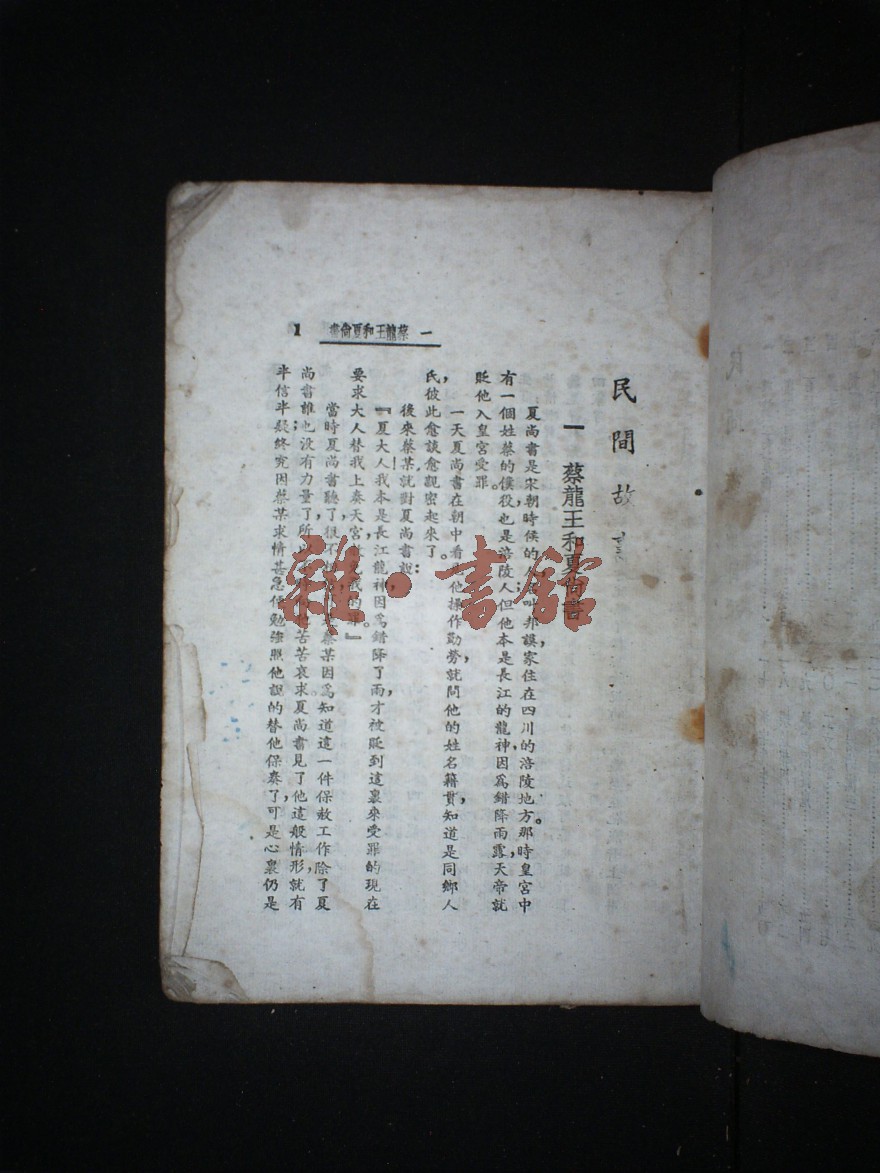 民間故
一 蔡龍王和夏尚書
夏尚書是宋朝時候的人,叫邦謨,家住在四川的涪陵地方。那時皇宮中
有一個姓蔡的僕役,也是涪陵人,但他本是長江的龍神,因爲錯降雨露,天帝就
貶他入皇宮受罪。
一天,夏尚書在朝中看見他操作勤勞,就問他的姓名籍貫,知道是同鄉人
氏,彼此愈談愈親密起來了。
後來蔡某就對夏尚書說:
『夏大人,我本是長江龍神,因爲錯降了雨,才被貶到這裏來受罪的,現在
要求大人替我上奏天宮,赦免我的罪。』
當時夏尚書聽了,很不 蔡某因爲知道這一件保赦工作,除了夏
尚書,誰也沒有力量了,所以 苦苦哀求。夏尚書見了他這般情形,就有
半信半疑,終究因蔡某求情甚急,便勉強照他說的替他保奏了,可是心裏仍是
一 蔡龍王和夏尚書 1
雜·書館